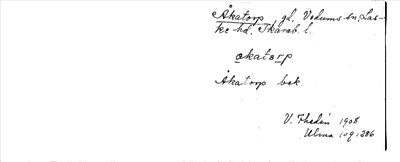 Åkatorp, gd. Vedums sn, Las-
ke hd, Skarab. l.
åkatorp
Åkatorp bek.
V. Ekedén 1908
Ulma 109:386